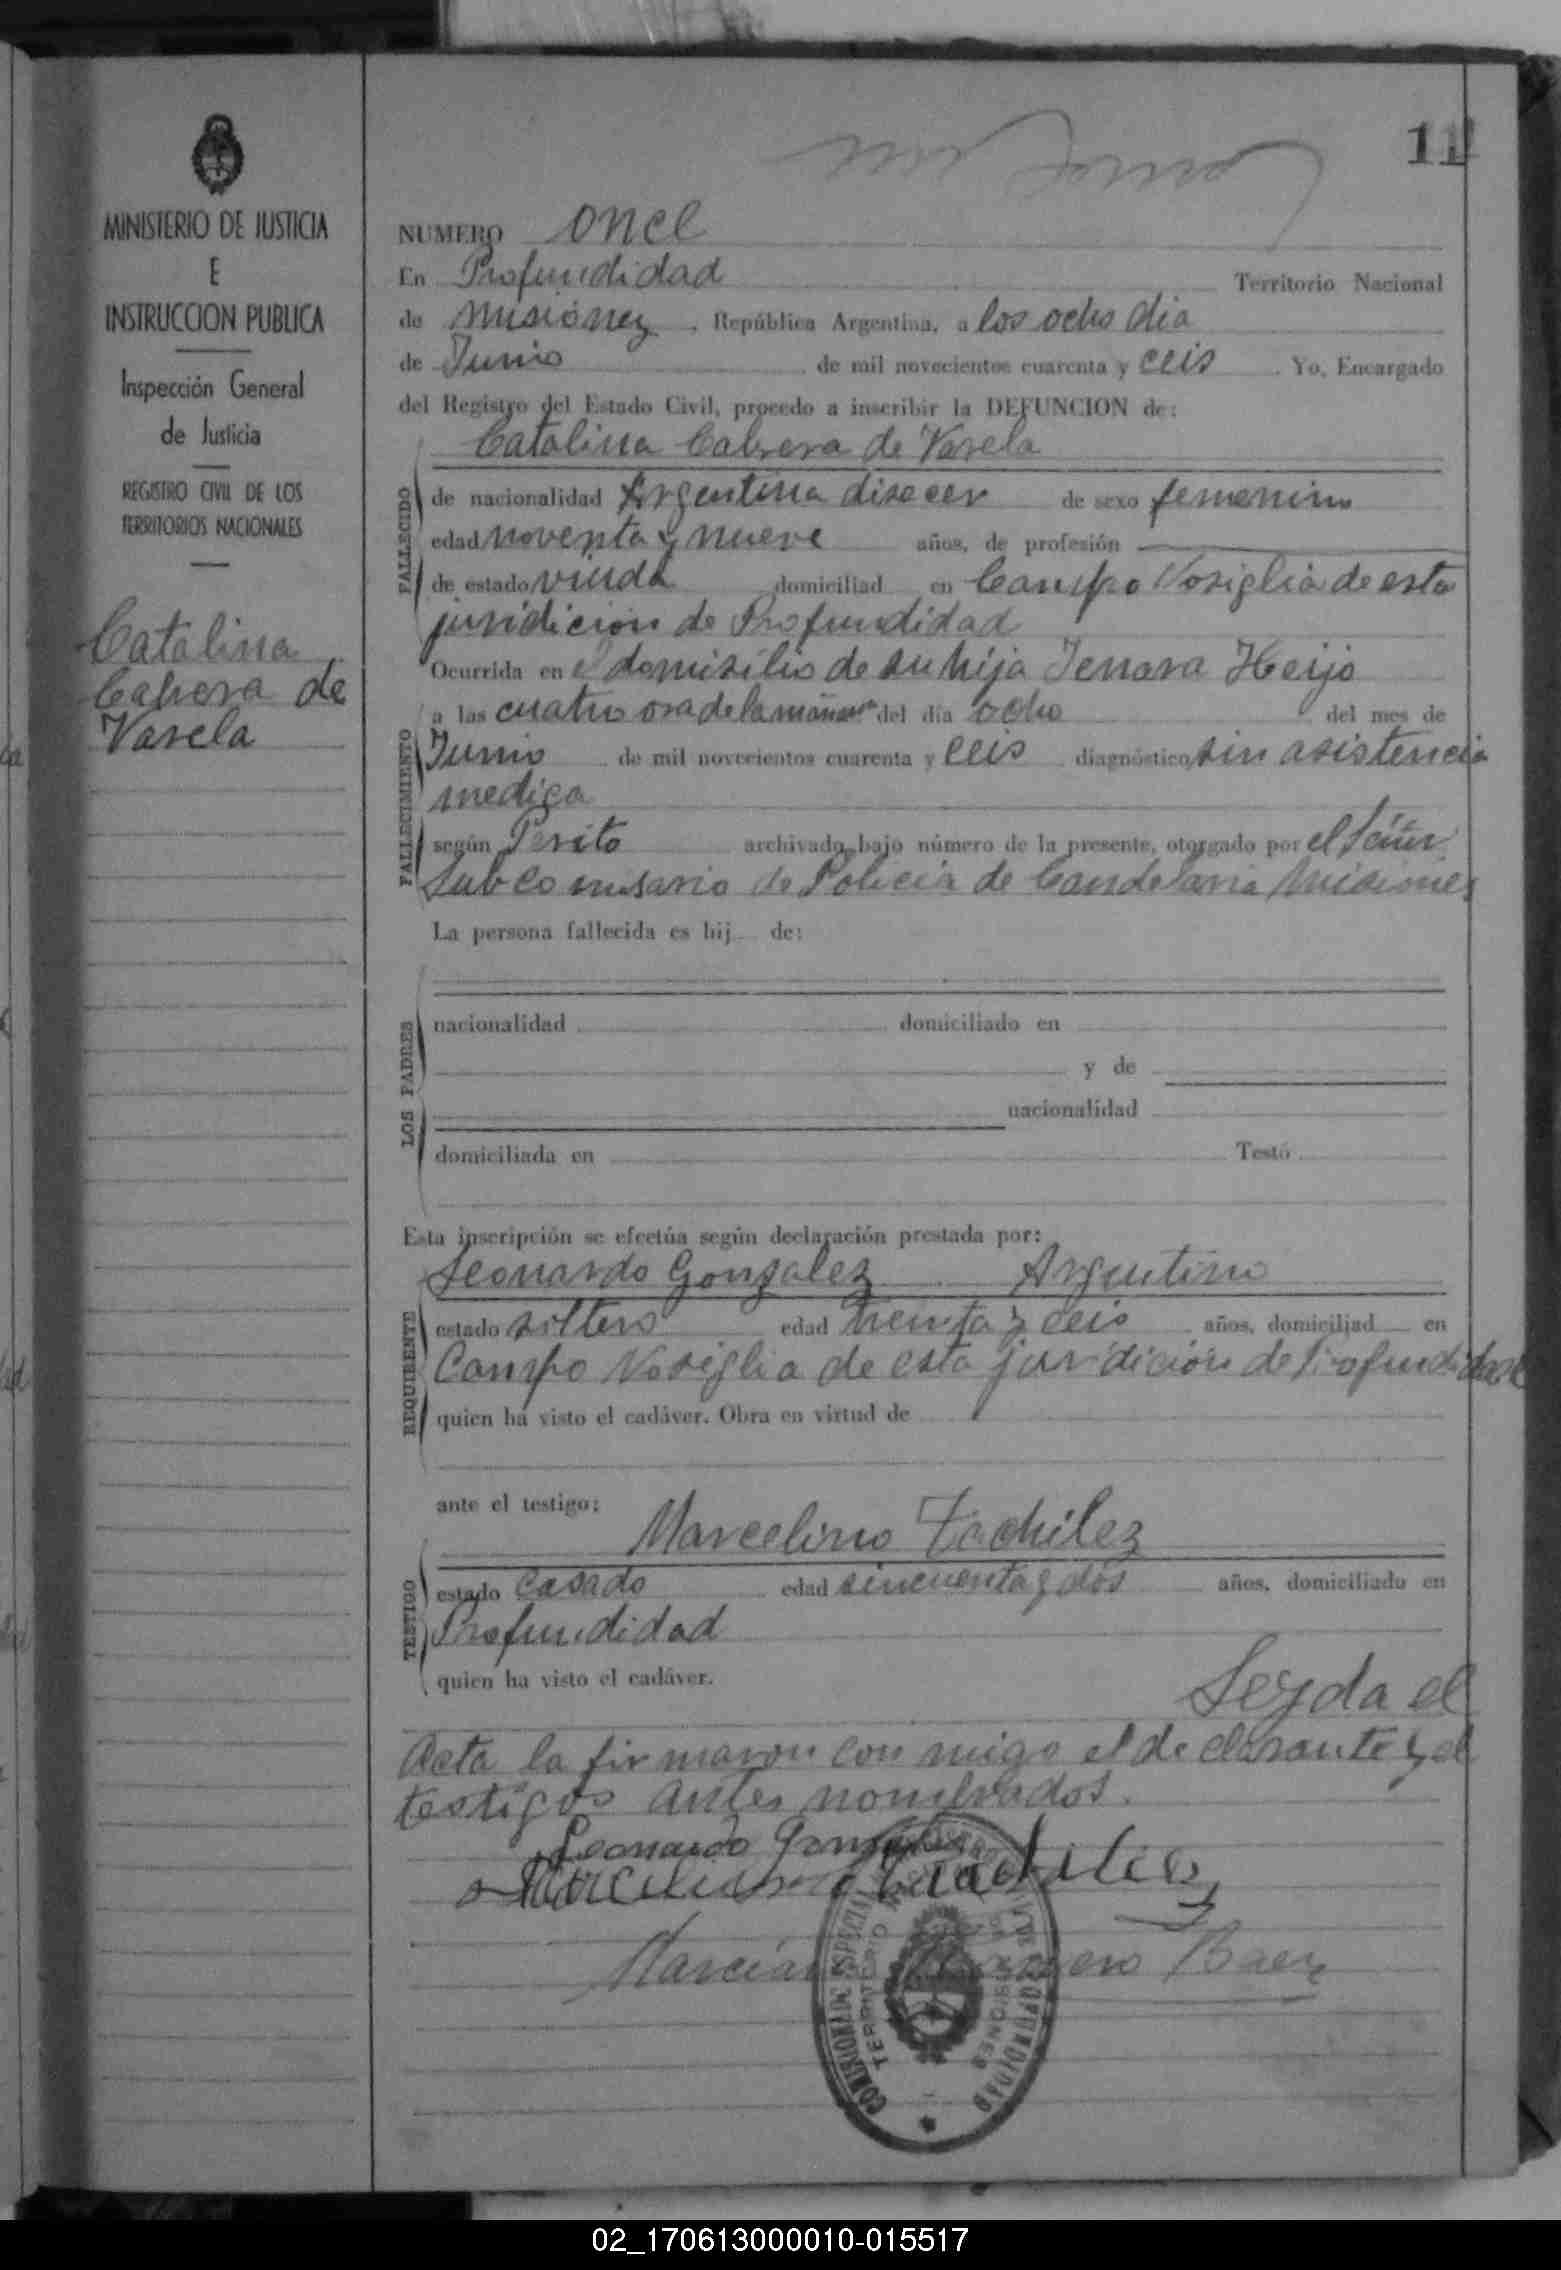 11
MINISTERIO DE JUSTICIA
E
INSTRUCCION PUBLICA
Inspección General
de Justicia
REGISTRO CIVIL DE LOS
TERRITORIOS NACIONALES
Catalina
Cabrera de
Varela
NUMERO once
En Profundidad Territorio Nacional
de Misiónez, República Argentina, a los ocho dia
de Junio de mil novecientos cuarenta y ceis. Yo, Encargado
del Registro del Estado Civil, procedo a inscribir la DEFUNCION de:
Catalina Cabrera de Varela
FALLECIDO
de nacionalidad Argentina disecer de sexo femenino
edad noventa y nueve años, de profesión
de estado viuda domiciliad en Campo Vosiglia de esta
juridicion de Profundidad
FALLECIMIENTO
Ocurrida en el domisilio de su hija Jenara
a las cuatro ora de la mañana del día ocho del mes de
Junio de mil novecientos cuarenta y ceis diagnóstico sin asistencia
mediga
según Perito archivado bajo número de la presente, otorgado por el Señor
Subcomisario de Policia de Candelaria Misiones
La persona fallecida es hij de:
LOS PADRES
nacionalidad domiciliado en
y de
nacionalidad
domiciliada en Testó
Esta inscripción se efectúa según declaración prestada por:
REQUIRENTE
Leonardo Gonzalez Argentino
estado soltero edad treinta y ceis años, domiciliad en
Campo Vosiglia de esta juridición de Profundidad
quien ha visto el cadáver. Obra en virtud de
ante el testigo:
Marcelino
TESTIGO
estado casado edad sincuenta y dos años, domiciliado en
Profundidad
quien ha visto el cadáver.
Leyda el
Acta la firmaron con migo el declarante y el
testigos antes nombrados.
Leonardo Gonzalez
Marcelino
Baez
COMISION DE FOMENTO
TERRITORIO
MISIONES
PROFUNDIDAD
02_170613000010-015517